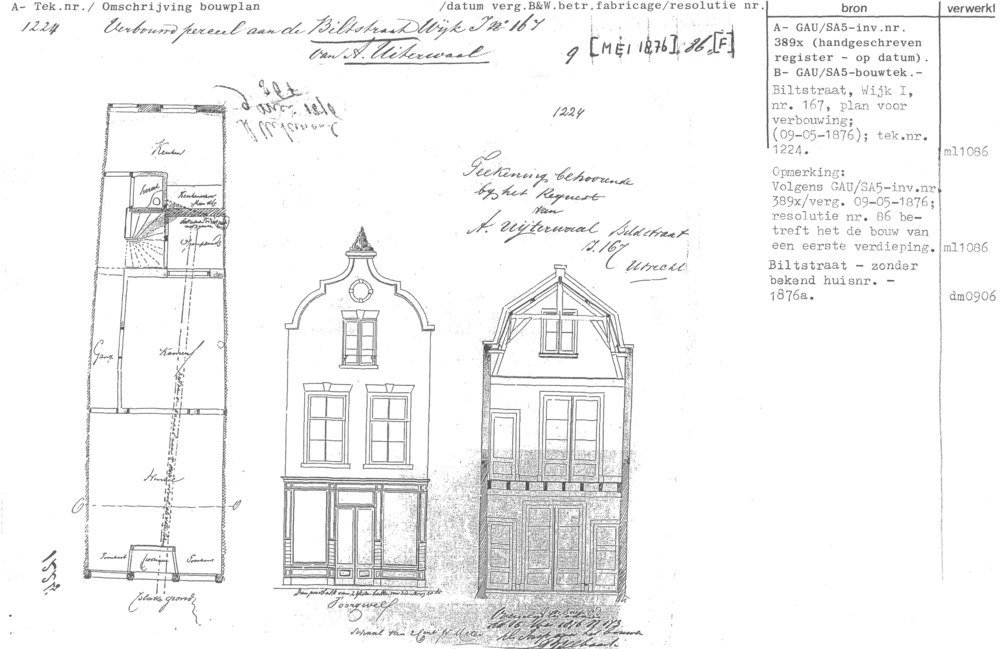 A- Tek.nr./ Omschrijving bouwplan /datum verg.B&W.betr.fabricage/resolutie nr.
bron
verwerkt
1224 Verbouw perceel aan de Biltstraat Wijk I No 167
van A. Uiterwaal
9 [MEI 1876]. 86, [F]
A- GAU/SA5-inv.nr.
389x (handgeschreven
register - op datum).
B- GAU/SA5-bouwtek.-
Biltstraat, Wijk I,
nr. 167, plan voor
verbouwing;
(09-05-1876); tek.nr.
1224.
ml1086
Opmerking:
Volgens GAU/SA5-inv.nr.
389x/verg. 09-05-1876;
resolutie nr. 86 be-
treft het de bouw van
een eerste verdieping.
ml1086
Biltstraat - zonder
bekend huisnr. -
1876a.
dm0906
1224
Teekening behoorende
bij het Request
van
A. Uijterwaal Bildstraat
I. 167
Utrecht
Keuken
Gang
Kamer
Winkel
1224.
Voorgevel
schaal van 2 Cent pr Meter